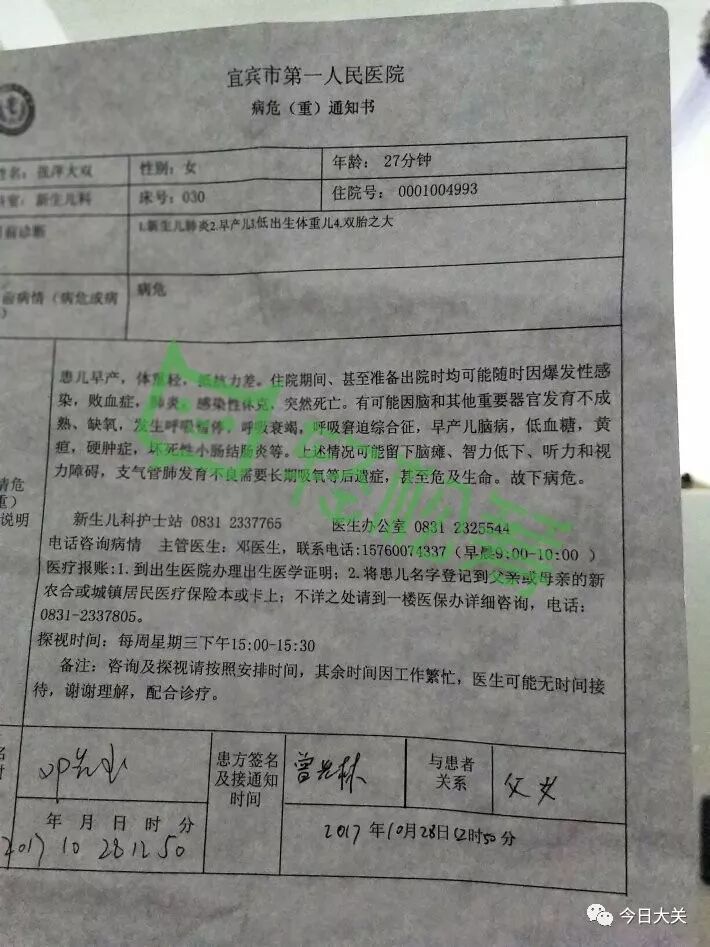 宜宾市第一人民医院
病危（重）通知书
姓名：张萍大双 性别：女 年龄：27分钟
科室：新生儿科 床号：030 住院号：0001004993
目前诊断 1.新生儿肺炎2.早产儿3.低出生体重儿4.双胎之大
前病情（病危或病 病危
患儿早产，体重轻，抵抗力差。住院期间、甚至准备出院时均可能随时因爆发性感
染，败血症，肺炎，感染性休克，突然死亡。有可能因脑和其他重要器官发育不成
熟、缺氧，发生呼吸暂停，呼吸衰竭，呼吸窘迫综合征，早产儿脑病，低血糖，黄
疸，硬肿症，坏死性小肠结肠炎等。上述情况可能留下脑瘫、智力低下、听力和视
力障碍，支气管肺发育不良需要长期吸氧等后遗症，甚至危及生命。故下病危。
病危
重）
说明
新生儿科护士站 0831 2337765 医生办公室 0831 2325544
电话咨询病情 主管医生：邓医生，联系电话:15760074337（早晨9:00-10:00 ）
医疗报账:1.到出生医院办理出生医学证明；2.将患儿名字登记到父亲或母亲的新
农合或城镇居民医疗保险本或卡上；不详之处请到一楼医保办详细咨询，电话：
0831-2337805。
探视时间：每周星期三下午15:00-15:30
备注：咨询及探视请按照安排时间，其余时间因工作繁忙，医生可能无时间接
待，谢谢理解，配合诊疗。
患方签名
及接通知
时间
曾光林
与患者
关系
父女
年 月 日 时 分
2017 10 28 12 50
2017年10月28日12时50分
今日大关